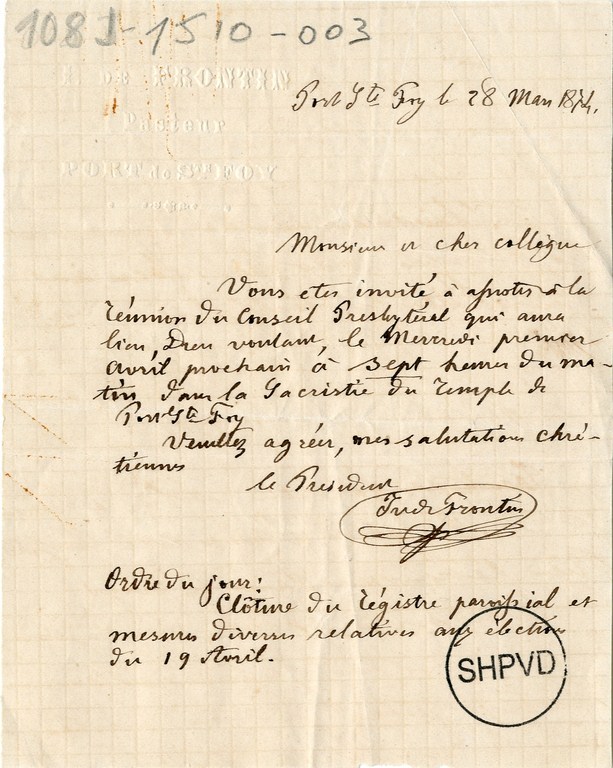 108J-1510-003
DE FRONTIN
Pasteur
PORT de Ste FOY
Port Ste Foy le 28 Mars 1874.
Monsieur et cher collègue
Vous etes invité à assister à la
réunion du Conseil Presbytéral qui aura
lieu, Dieu voulant, le Mercredi premier
avril prochain à sept heures du ma-
tin dans la Sacristie du Temple de
Port Ste Foy
Veuillez agréer, mes salutations chré-
tiennes
le President
Frontin
Ordre du jour:
Clôture du régistre paroissial et
mesures diverses relatives aux élections
du 19 Avril.
SHPVD